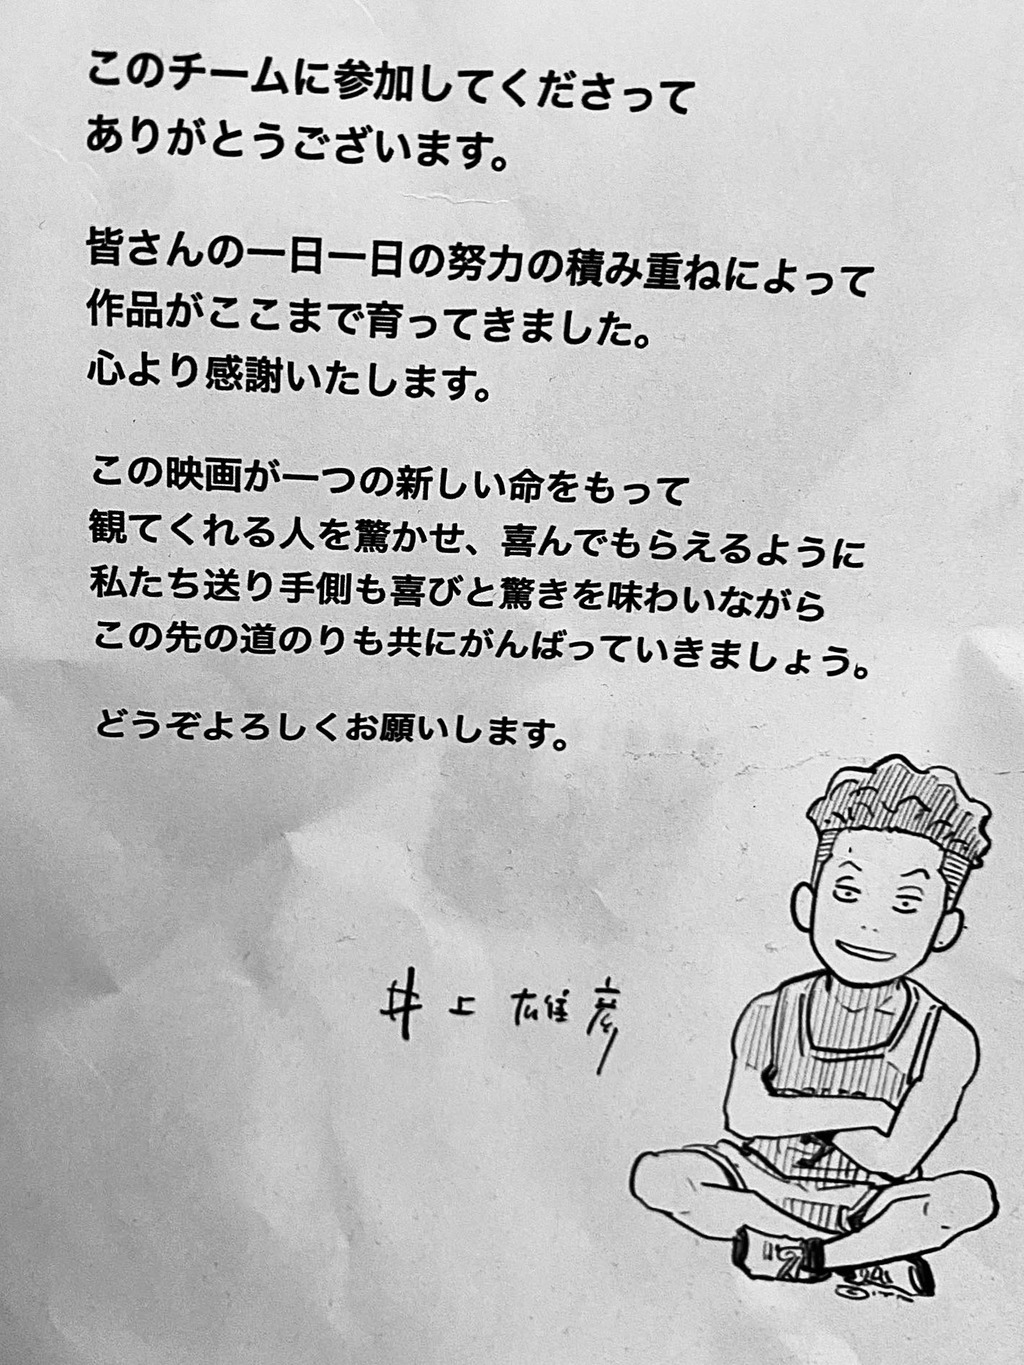 このチームに参加してくださって
ありがとうございます。
皆さんの一日一日の努力の積み重ねによって
作品がここまで育ってきました。
心より感謝いたします。
この映画が一つの新しい命をもって
観てくれる人を驚かせ、喜んでもらえるように
私たち送り手側も喜びと驚きを味わいながら
この先の道のりも共にがんばっていきましょう。
どうぞよろしくお願いします。
井上雄彦